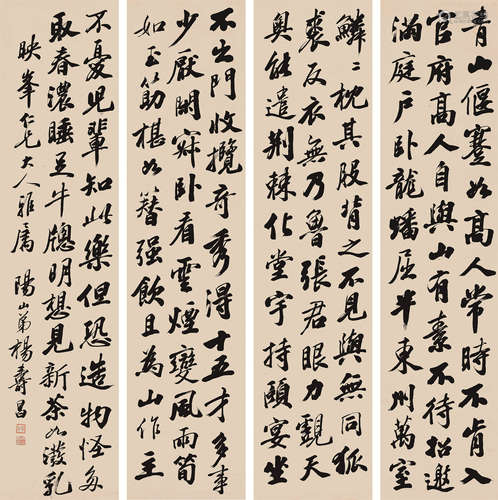 青山偃蹇如高人常時不肯入
官府高人自與山有素不待招邀
滿庭戶卧龍蟠屈半東州萬室
鱗〻枕其股背之不見與無同狐
裘反衣無乃魯張君眼力覷天
奥能遣荆棘化堂宇持頤宴坐
不出門收攬奇秀得十五才多事
少厭閒寂卧看雲煙變風雨筍
如玉箸椹如簪强飲且為山作主
不憂兒輩知此樂但恐造物怪多
取春濃睡足午牕明想見新茶如潑乳
映峯仁兄大人雅屬 陽山弟楊壽昌